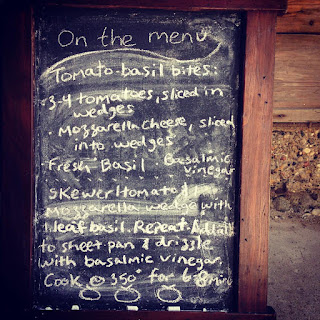 On the menu
Tomato-basil bites:
• 3-4 tomatoes, sliced in
wedges
• Mozzarella Cheese, sliced
into wedges
• Fresh Basil • Basalmic
vinegar
Skewer 1 tomato & 1
mozzarella wedge with
1 leaf basil. Repeat. Add all
to sheet pan & drizzle
with basalmic vinegar.
Cook @ 350° for 6-8 mins